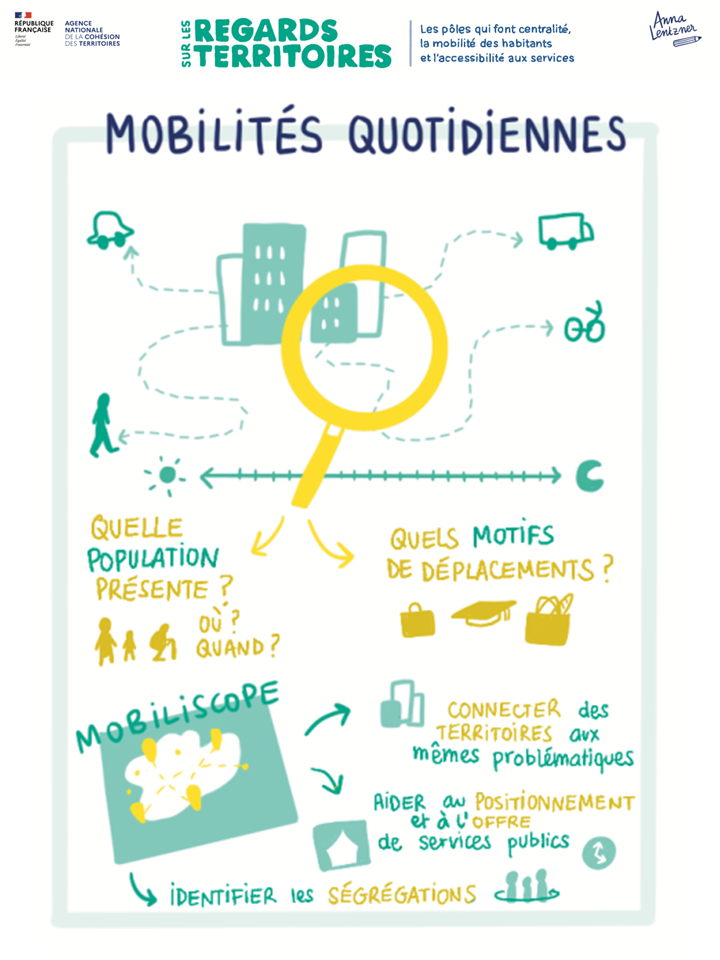 RÉPUBLIQUE
FRANÇAISE
Liberté
Égalité
Fraternité
AGENCE
NATIONALE
DE LA COHÉSION
DES TERRITOIRES
REGARDS
SUR LES
TERRITOIRES
Les pôles qui font centralité,
la mobilité des habitants
et l'accessibilité aux services
Anna
Lentzner
MOBILITÉS QUOTIDIENNES
QUELLE
POPULATION
PRÉSENTE ?
OÙ ?
QUAND ?
QUELS MOTIFS
DE DÉPLACEMENTS ?
MOBILISCOPE
CONNECTER des
TERRITOIRES aux
mêmes problématiques
AIDER au POSITIONNEMENT
et à l'OFFRE
de services publics
IDENTIFIER les SÉGRÉGATIONS